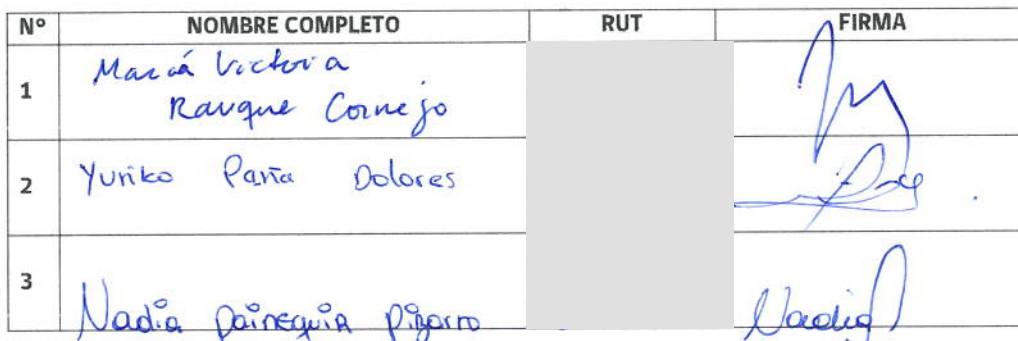 N° NOMBRE COMPLETO RUT FIRMA
1 María Victoria
Rauque Cornejo
2 Yuriko Paria Dolores
3 Nadia Painequir Pizarro Nadia